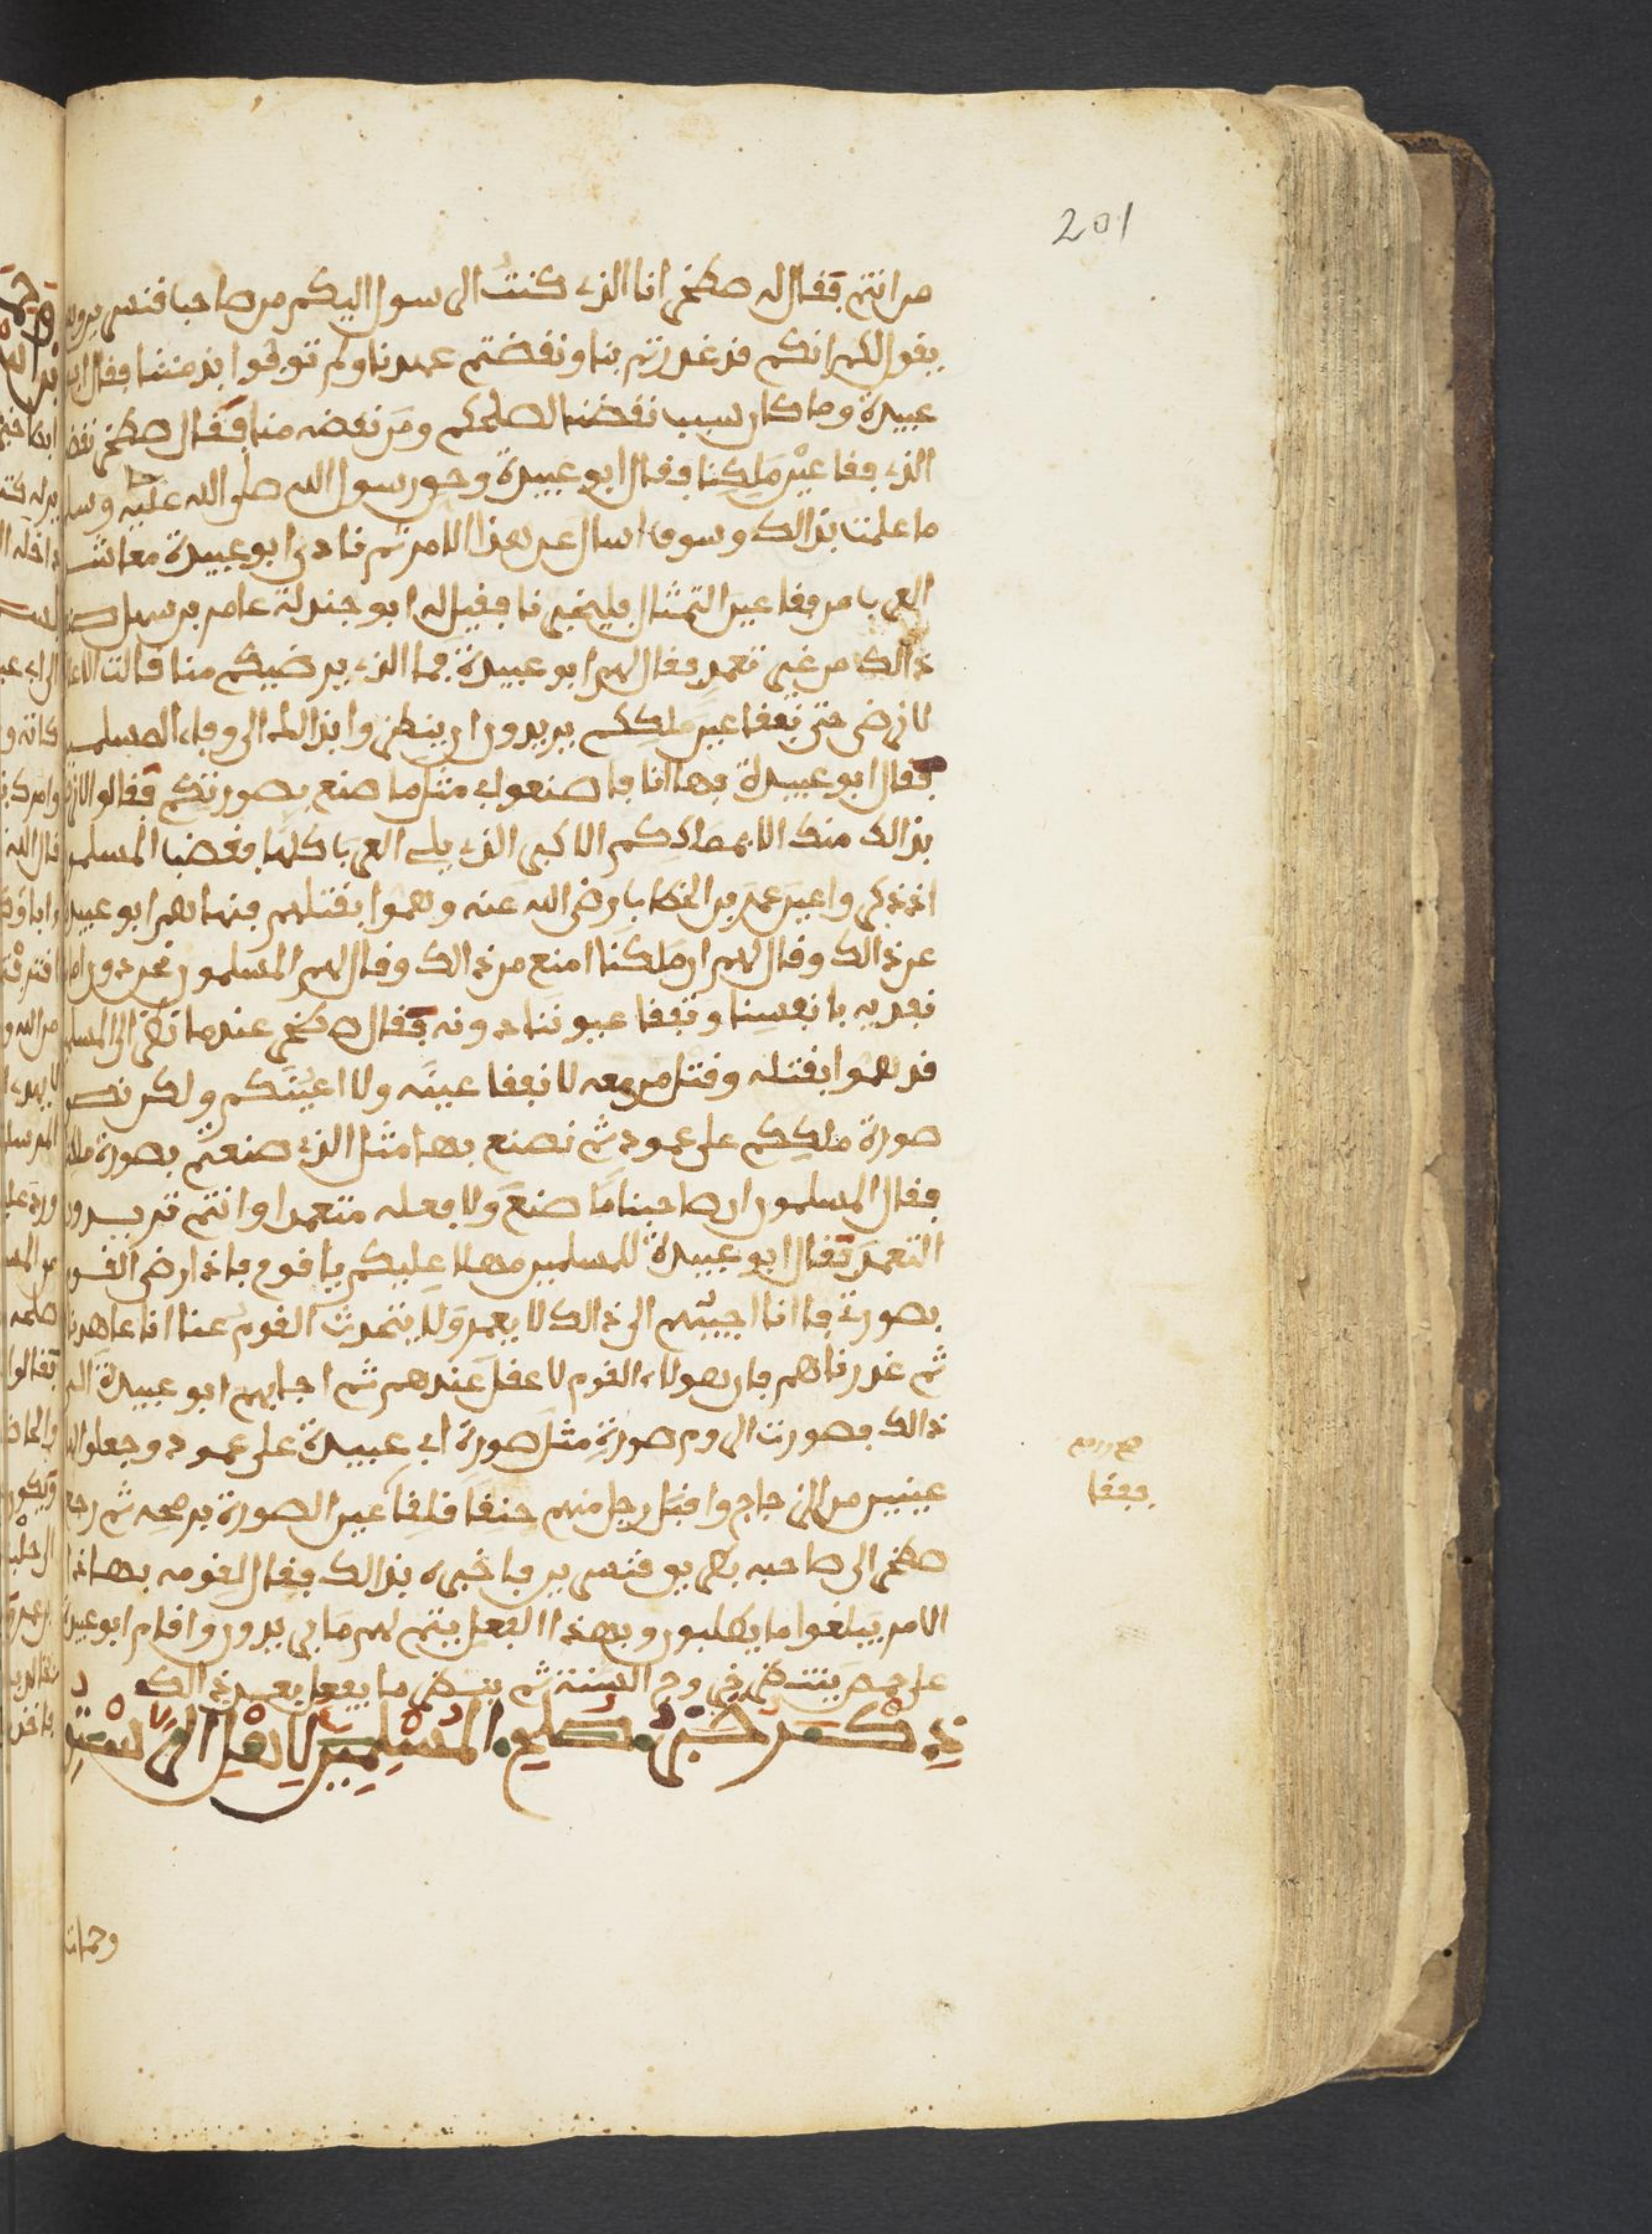 201
من انتم فقال له صطخر انا الذي كنت الرسول اليكم من صاحب قنسرين وهو
يقول لكم انكم قد غدرتم بنا ونقضتم عهدنا ولم توفوا بذمتنا فقال ابو
عبيدة وما كان سبب نقضنا لصلحكم ومن نقضه منا فقال صطخر نقضه
الذي فقا عين ملكنا فقال ابو عبيدة وحق رسول الله صلى الله عليه وسلم
ما علمت بذالك وسوف اسال عن هذا الامر ثم نادى ابو عبيدة معاشر
العرب من فقا عين التمثال فليخبرنا فقيل له ابو جندلة عامر بن سهيل صنع
ذالك من غير تعمد فقال لهم ابو عبيدة فما الذي يرضيكم منا قالت الاعلاج
لا نرضى حتى نفقا عين ملككم يريدون ان ينظروا بذالك الى وفاء المسلمين
فقال ابو عبيدة فها انا فاصنعوا بي مثل ما صنع بصورتكم فقالوا لا نرضى
بذالك منك الا بملككم الاكبر الذي يلي العرب كلها فغضب المسلمون
اذ ذكروا عين عمر بن الخطاب رضي الله عنه وهموا بقتلهم فنهاهم ابو عبيدة
عن ذالك وقال لهم ان ملكنا امنع من ذالك وقال لهم المسلمون نحن دون امامنا
نفديه بانفسنا ونفقا عيوننا دونه فقال صطخر عندما نظر الى المسلمين
قد هموا بقتله وقتل من معه لا نفقا عينه ولا اعينكم ولكن نصور
صورة ملككم على عمود ثم نصنع بها مثل الذي صنعتم بصورة ملكنا
فقال المسلمون ان صاحبنا ما صنع ولا فعله متعمدا وانتم تريدون
التعمد فقال ابو عبيدة للمسلمين مهلا عليكم يا قوم فاذا رضي القوم
بصورة فانا اجيبهم الى ذالك لا يعمد ولا يتحدث القوم عنا انا عاهدناهم
ثم غدرناهم فان هولاء القوم لا عقل عندهم ثم اجابهم ابو عبيدة الى
ذالك فصورت الروم صورة مثل صورة ابي عبيدة على عمود وجعلوا له
عينين من الزجاج واقبل رجل منهم حنقا فلفقا عين الصورة برمحه ثم رجع
فففا
صطخر الى صاحبه بطريق قنسرين فاخبره بذالك فقال لقومه بهذا
الامر يبلغوا ما يطلبون وبهذا الفعل يتم لهم ما يريدون واقام ابو عبيدة
على حمص ينتظر خروج السنة ثم ينظر ما يفعل بعد ذالك
ذكر خبر صلح المسلمين لاهل الرستن
وحماة